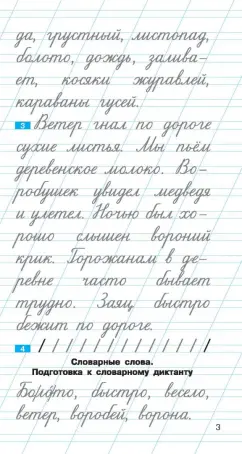 да, грустный, листопад,
болото, дождь, залива-
ет, косяки журавлей,
караваны гусей.
3 Ветер гнал по дороге
сухие листья. Мы пьём
деревенское молоко. Во-
робушек увидел медведя
и улетел. Ночью был хо-
рошо слышен вороний
крик. Горожанам в де-
ревне часто бывает
трудно. Заяц быстро
бежит по дороге.
4
Словарные слова.
Подготовка к словарному диктанту
Болото, быстро, весело,
ветер, воробей, ворона.
3